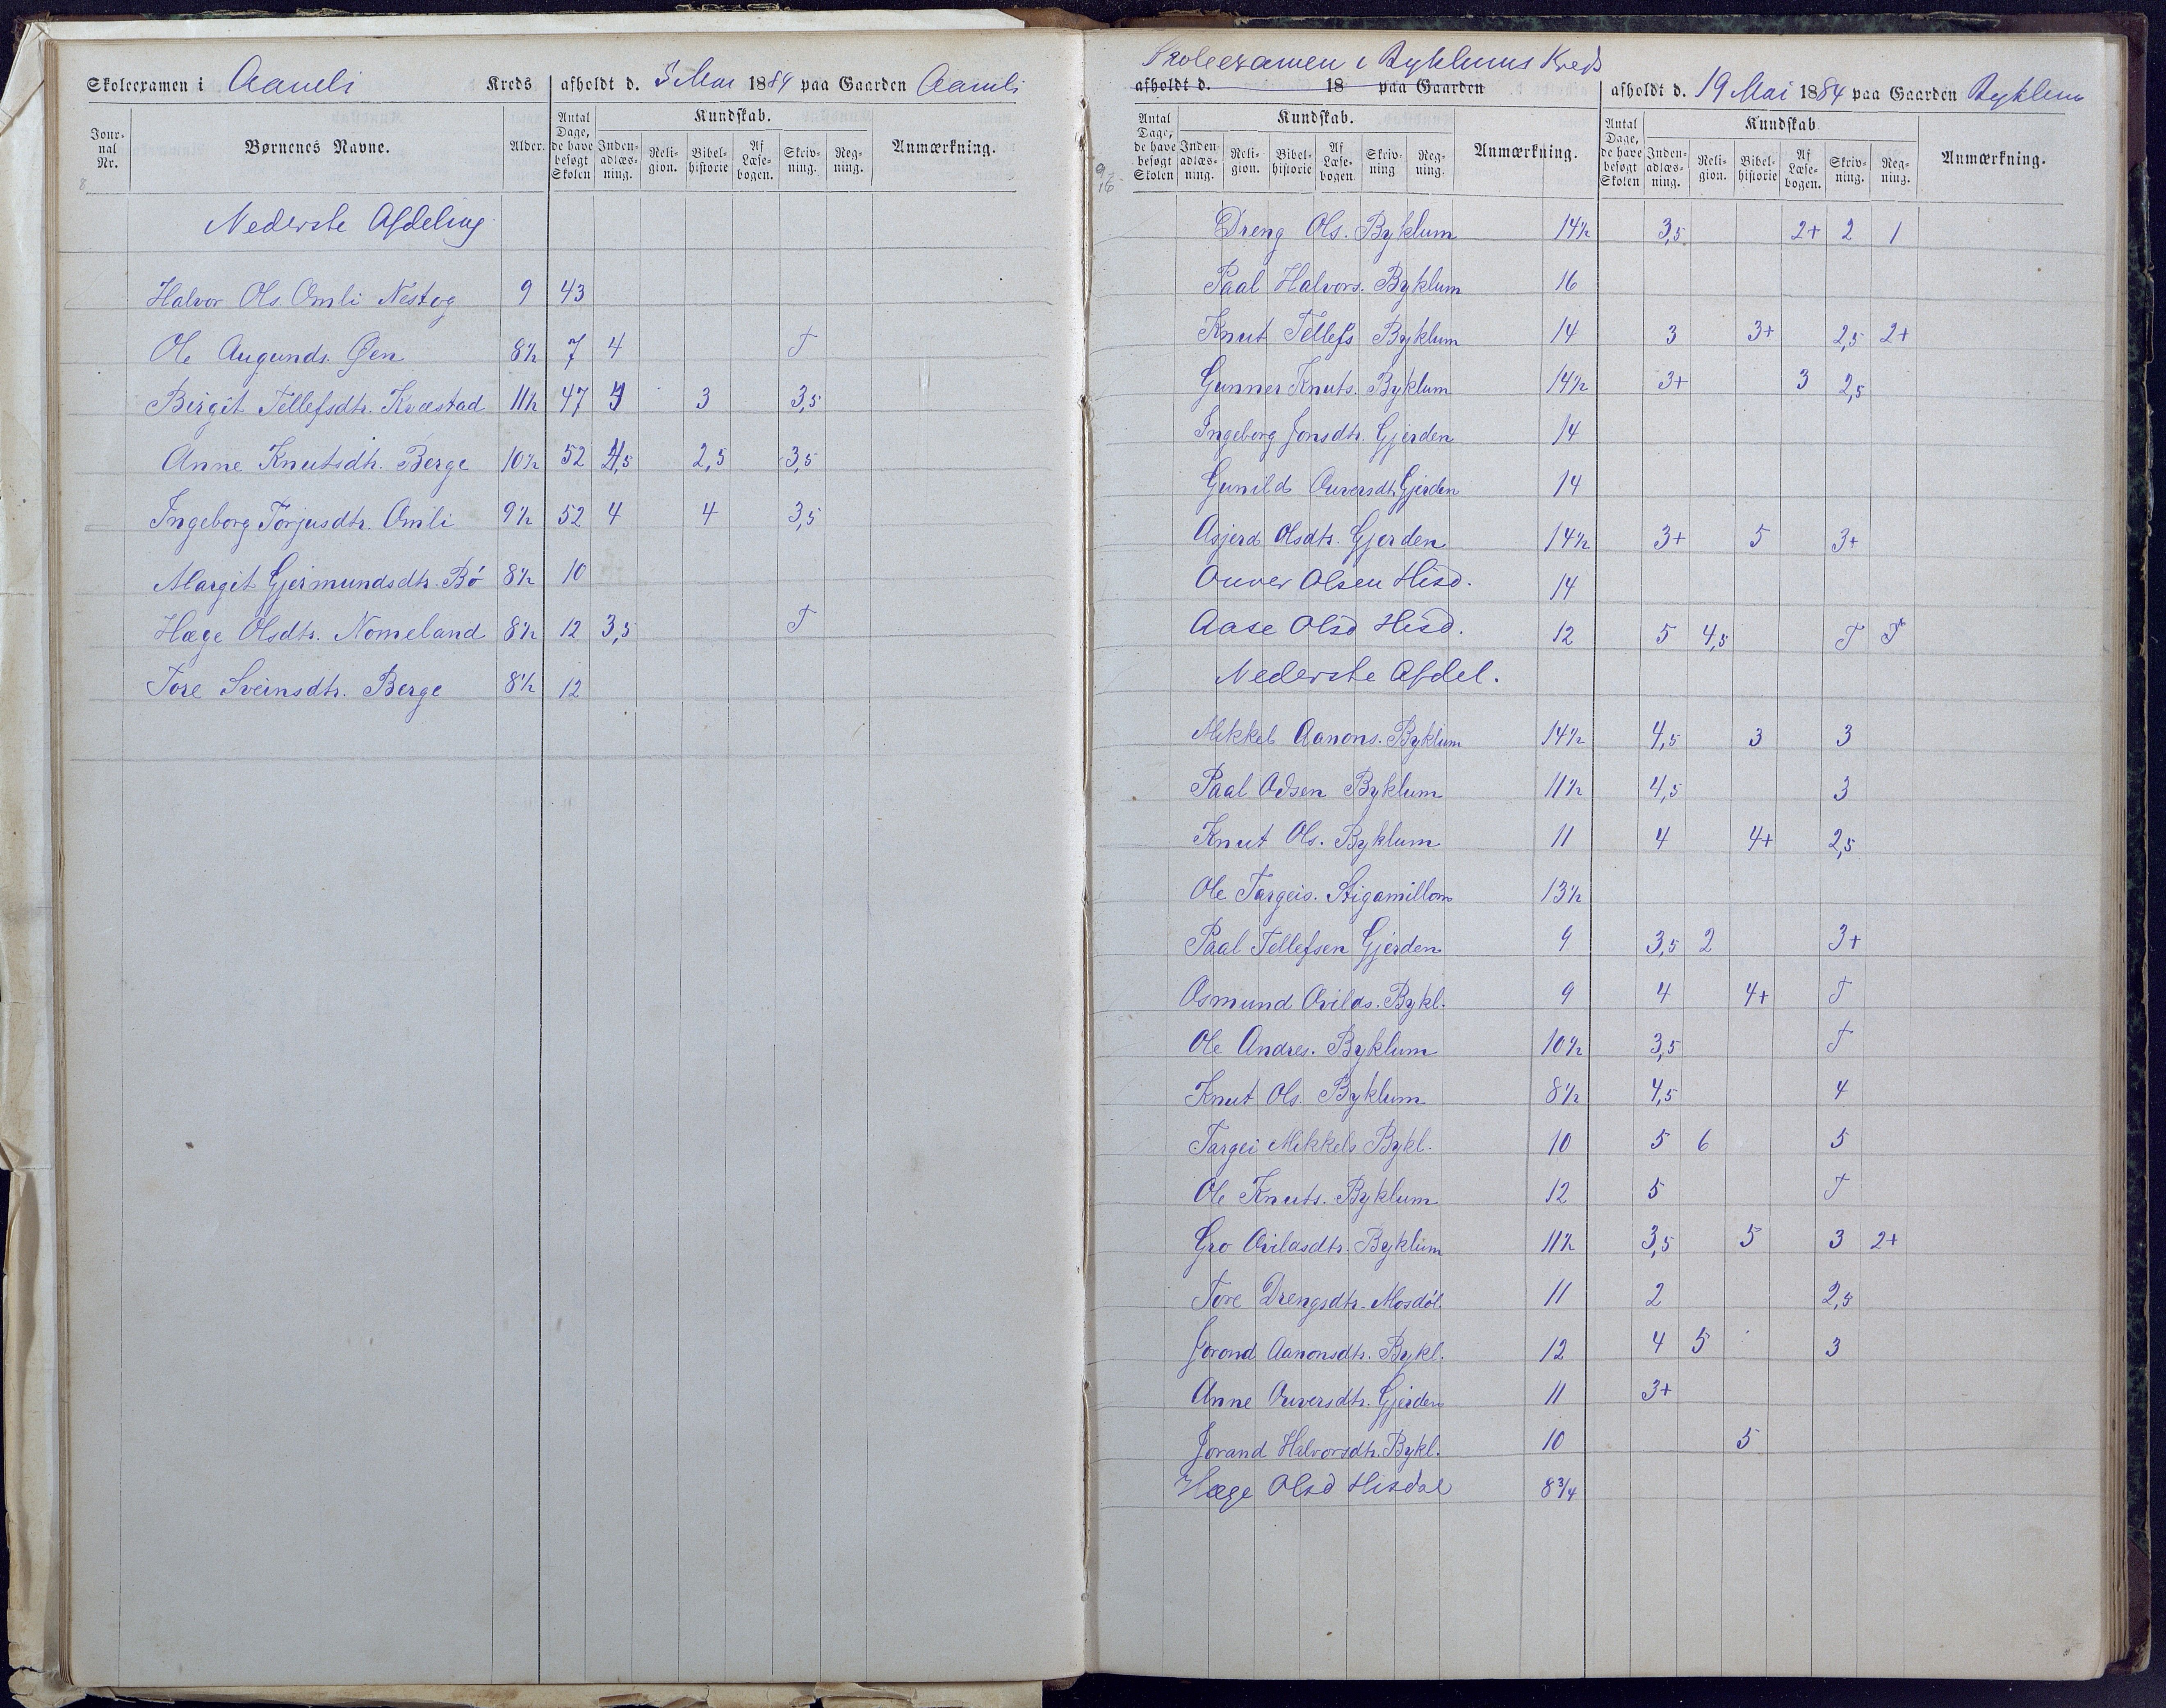 Skoleexamen i Aamli Kreds afholdt d. 5 Mai 1884 paa Gaarden Aamli
Jour-nal Nr. Børnenes Navne. Alder. Antal Dage, de have besøgt Skolen Kundskab. Inden-adlæs-ning. Reli-gion. Bibel-historie Af Læse-bogen. Skriv-ning. Reg-ning. Anmærkning.
Nederste Afdeling
Halvor Ols. Omli Nestog 9 43
Ole Augunds. Øen 8½ 7 4 T
Birgit Tellefsdtr. Kvæstad 11½ 47 3 3,5
Anne Knutsdtr. Berge 10½ 52 4,5 2,5 3,5
Ingeborg Torjusdtr. Omli 9½ 52 4 4 3,5
Margit Gjermundsdtr. Bö 8½ 10
Hæge Olsdtr. Nomeland 8½ 12 3,5 T
Tore Sveinsdtr. Berge 8½ 12
Skoleexamen i Byklums Kreds
afholdt d. 18 paa Gaarden afholdt d. 19 Mai 1884 paa Gaarden Byklum
Antal Dage, de have besøgt Skolen Kundskab. Inden-adlæs-ning. Reli-gion. Bibel-historie Af Læse-bogen. Skriv-ning Reg-ning. Anmærkning. Antal Dage, de have besøgt Skolen Kundskab Inden-adlæs-ning. Reli-gion. Bibel-historie Af Læse-bogen. Skriv-ning. Reg-ning. Anmærkning.
Dreng Ols. Byklum 14½ 3,5 2+ 2 1
Paal Halvors. Byklum 16
Knut Tellefs Byklum 14 3 3+ 2,5 2+
Gunner Knuts. Byklum 14½ 3+ 3 2,5
Ingeborg Jonsdtr. Gjerden 14
Gunild Ouversdtr. Gjerden 14
Asjerd Olsdtr. Gjerden 14½ 3+ 5 3+
Ouver Olsen Hisd. 14
Aase Olsd Hisd. 12 5 4,5 T T
Nederste Afdel.
Mikkel Aanons. Byklum 14½ 4,5 3 3
Paal Odsen Byklum 11½ 4,5 3
Knut Ols. Byklum 11 4 4+ 2,5
Ole Targeis. Stigamillom 13½
Paal Tellefsen Gjerden 9 3,5 2 3+
Osmund Ovilds. Bykl. 9 4 4+ T
Ole Andres. Byklum 10½ 3,5 T
Knut Ols. Byklum 8½ 4,5 4
Targei Mikkels Bykl. 10 5 6 5
Ole Knuts. Byklum 12 5 T
Gro Ovildsdtr. Byklum 11½ 3,5 5 3 2+
Tore Drengsdtr. Mosdöl. 11 2 2,5
Jorond Aanonsdtr. Bykl. 12 4 5 3
Anne Ouversdtr. Gjerden 11 3+
Jorand Halvorsdtr. Bykl. 10 5
Hæge Olsd Hisdal 8¾